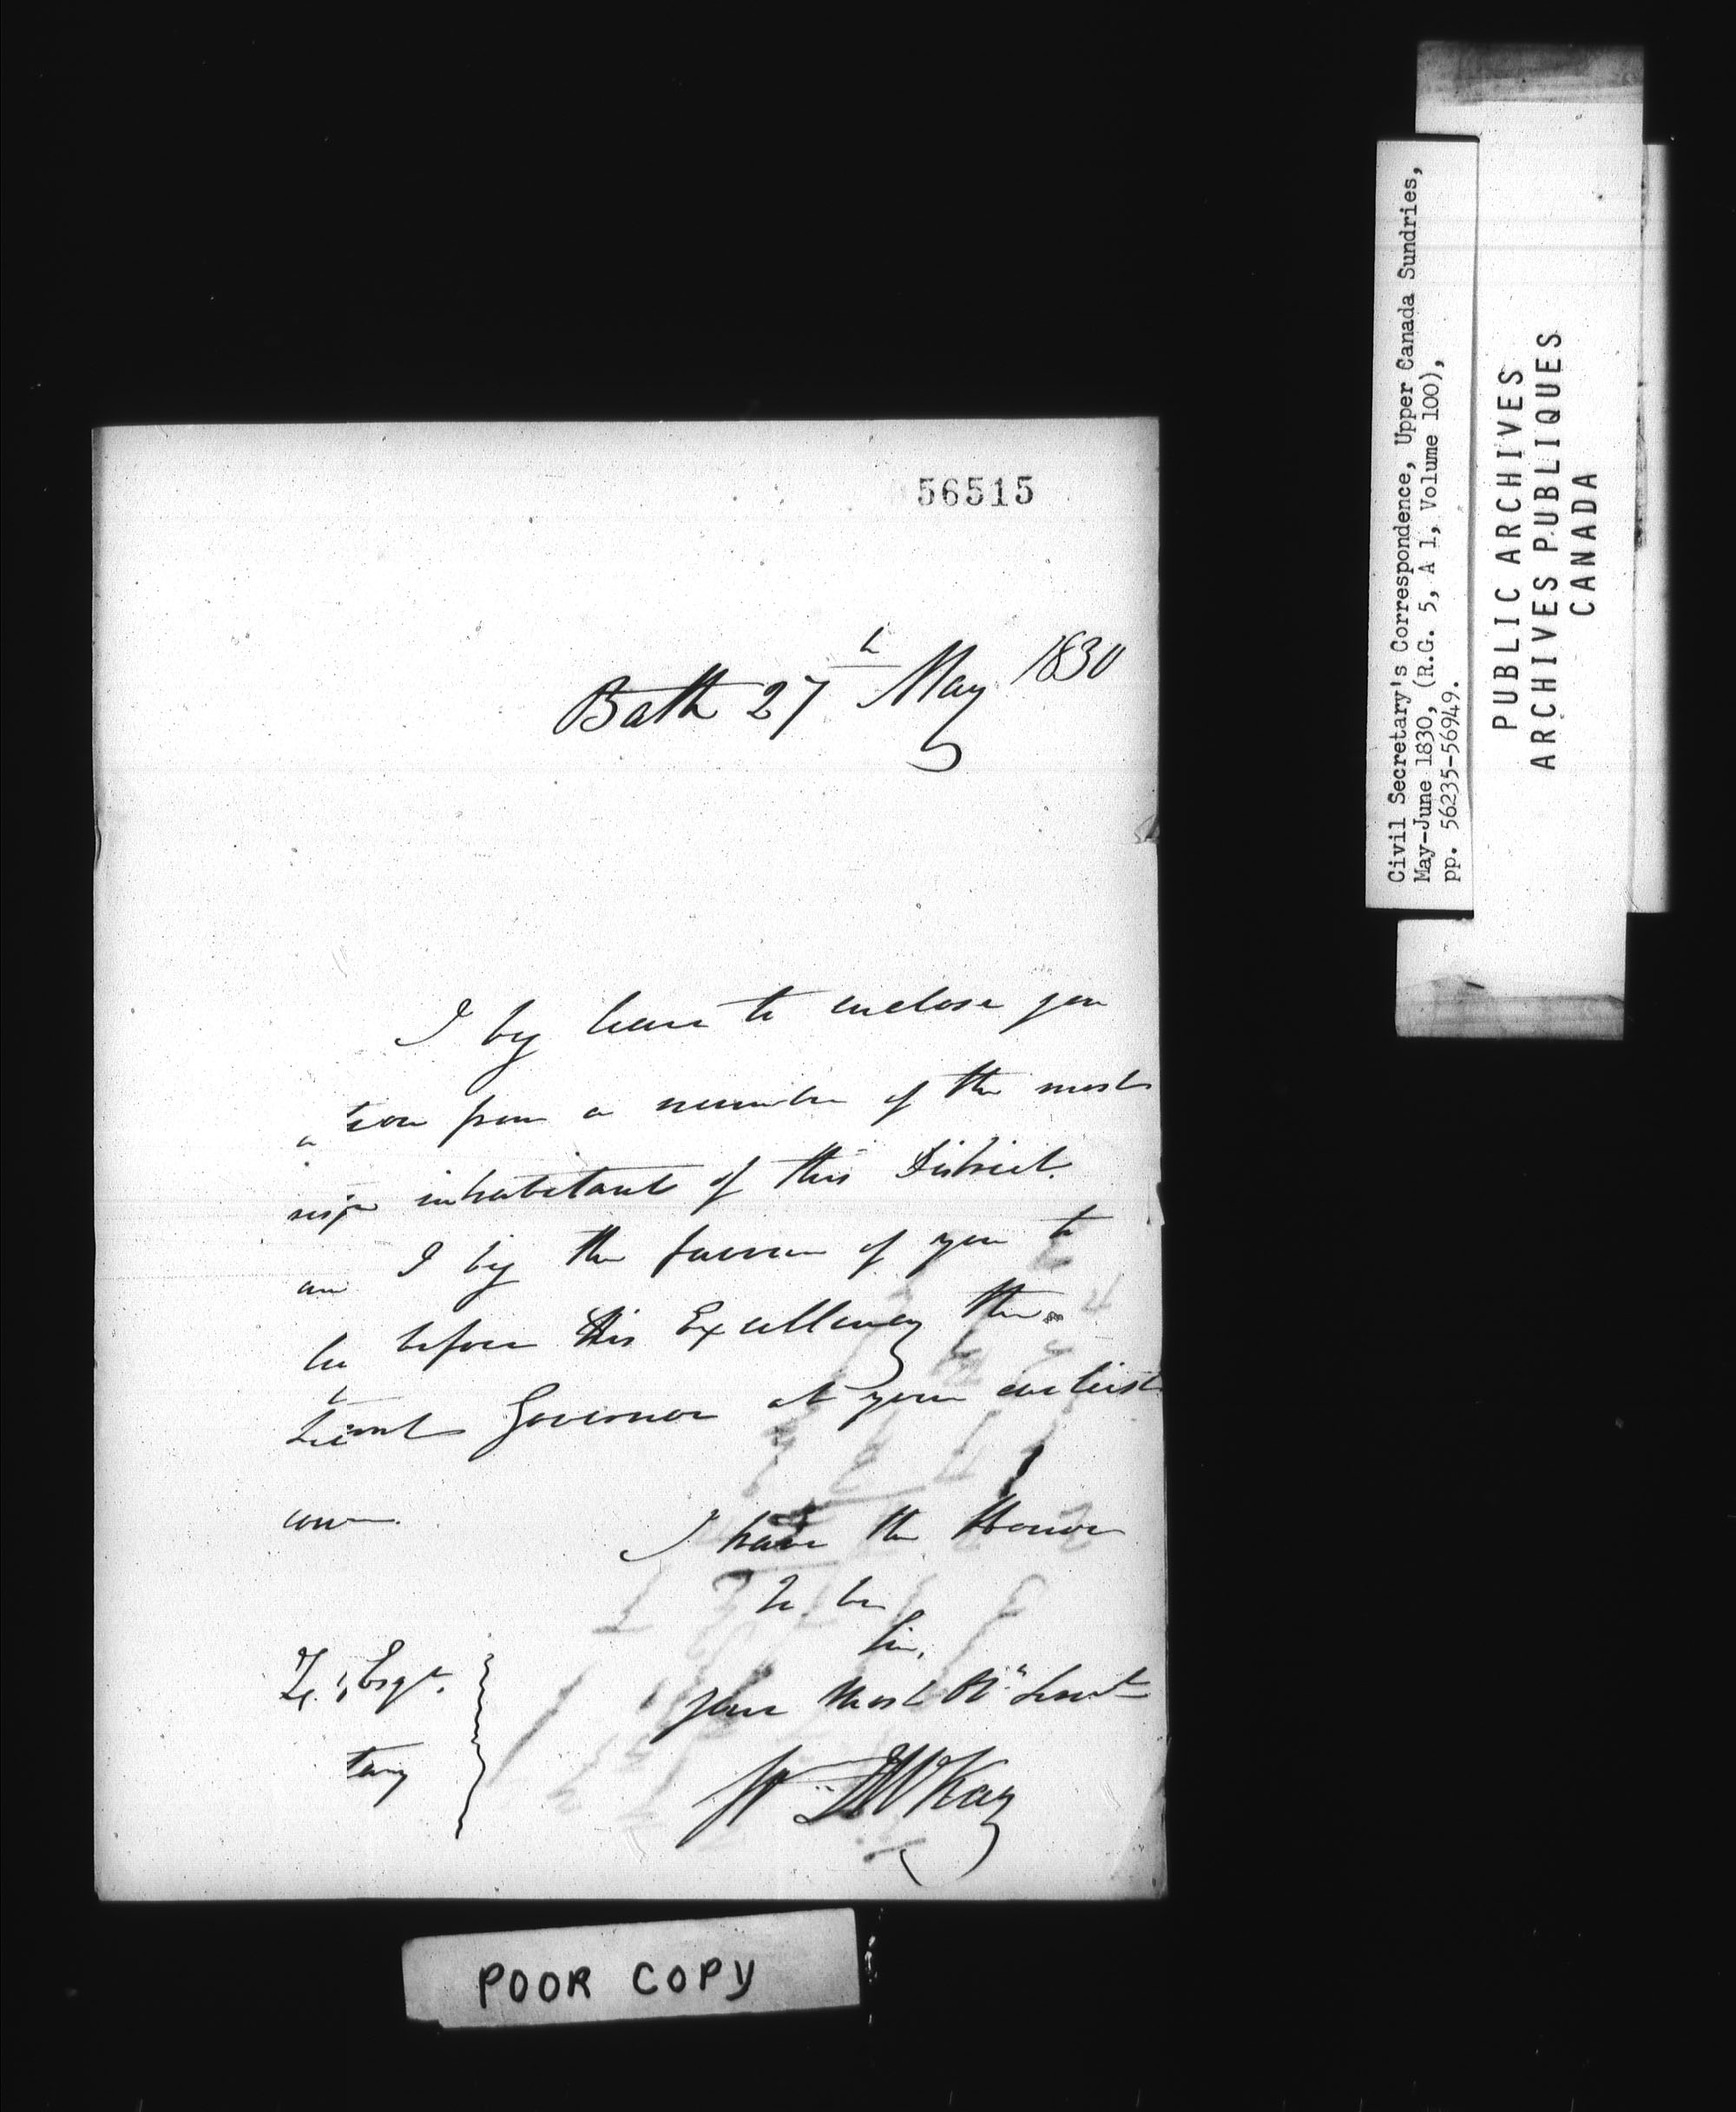 56515
Bath 27th May 1830
I beg leave to enclose you
a tion from a number of the most
resp inhabitants of this District.
and I beg the favour of you to
before His Excellency the
Lieut Governor at your earliest
con
I have the Honor
to be
Sir,
your Most Ob Servt
McKay
Z. Esqr.
tary
POOR COPY
Civil Secretary's Correspondence, Upper Canada Sundries,
May-June 1830, (R.G. 5, A 1, Volume 100),
pp. 56235-56949.
PUBLIC ARCHIVES
ARCHIVES PUBLIQUES
CANADA